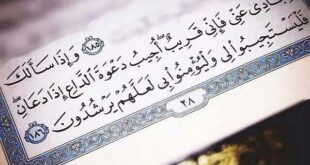 ١٨٥ وَإِذَا سَأَلَكَ
عِبَادِي عَنِّي فَإِنِّي قَرِيبٌ ۖ أُجِيبُ دَعْوَةَ الدَّاعِ إِذَا دَعَانِ ۖ
فَلْيَسْتَجِيبُوا لِي وَلْيُؤْمِنُوا بِي لَعَلَّهُمْ يَرْشُدُونَ ١٨٦
٢٨